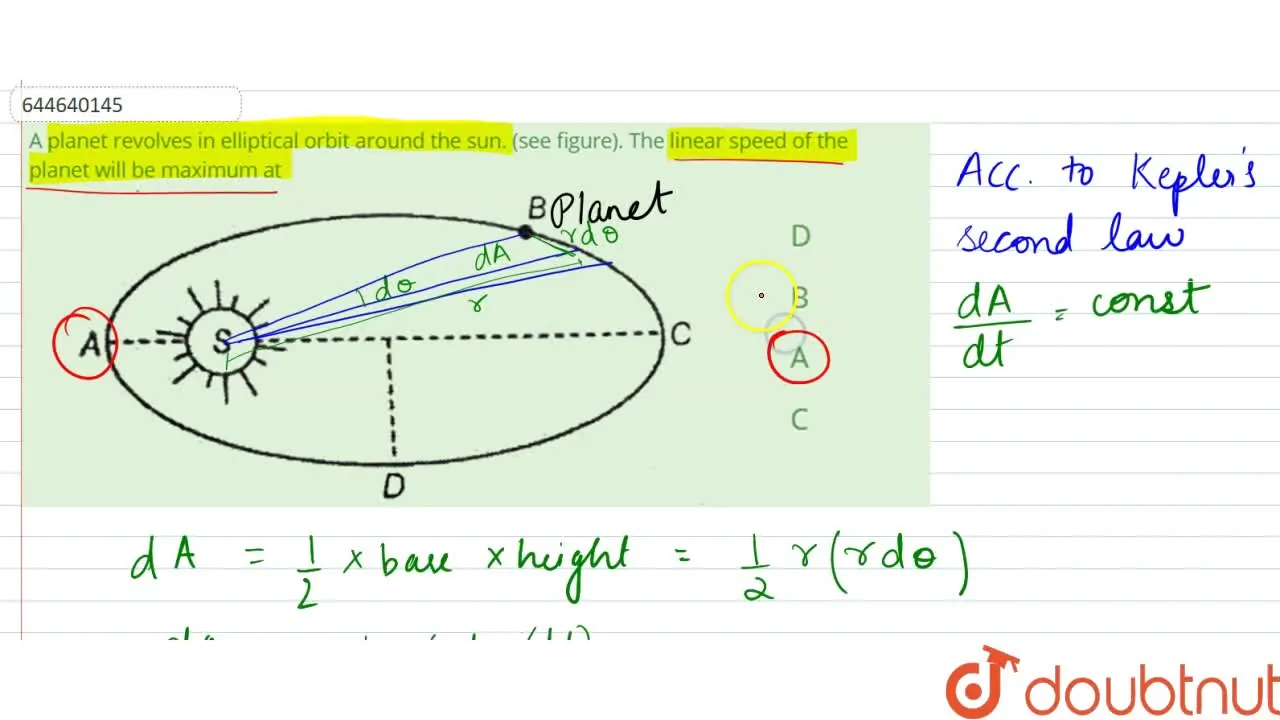 644640145
A planet revolves in elliptical orbit around the sun. (see figure). The linear speed of the
planet will be maximum at
B Planet
rdθ
dA
dθ
r
A
S
C
D
D
B
A
C
Acc. to Kepler's
second law
dA/dt = const
dA = 1/2 × base × height = 1/2 r(rdθ)
doubtnut